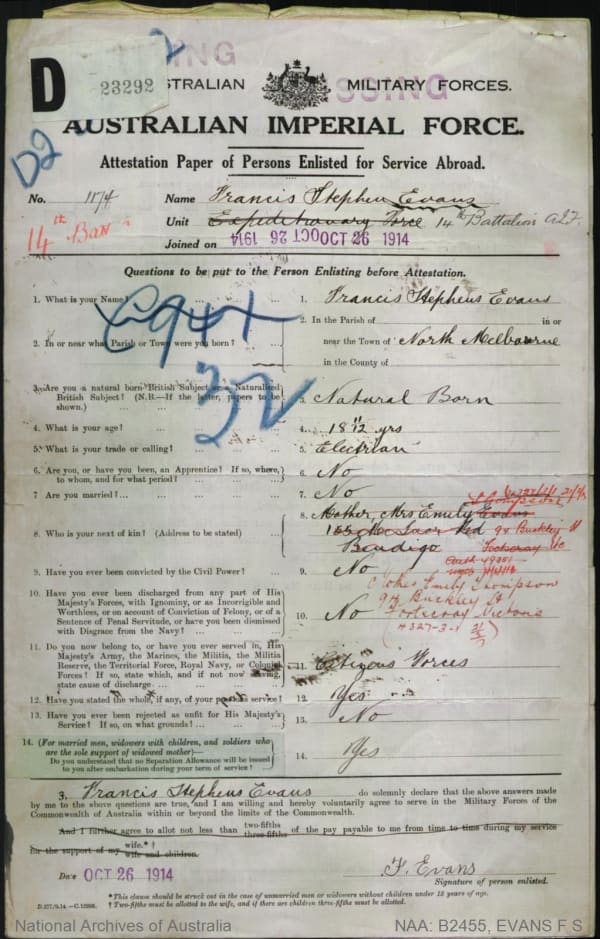 D
23292
AUSTRALIAN MILITARY FORCES.
AUSTRALIAN IMPERIAL FORCE.
D2
Attestation Paper of Persons Enlisted for Service Abroad.
No. 1174 Name Francis Stephen Evans
14th Ban Unit Expeditionary Force 14th Battalion AIF
Joined on OCT 26 1914 OCT 26 1914
Questions to be put to the Person Enlisting before Attestation.
1. What is your Name? 1. Francis Stephens Evans
2. In or near what Parish or Town were you born? 2. In the Parish of in or
near the Town of North Melbourne
in the County of
3. Are you a natural born British Subject or a Naturalised
British Subject? (N.B.—If the latter, papers to be
shown.) 3. Natural Born
4. What is your age? 4. 18 11/12 yrs
5. What is your trade or calling? 5. Electrian
6. Are you, or have you been, an Apprentice? If so, where,
to whom, and for what period? 6. No
7. Are you married? 7. No
8. Who is your next of kin? (Address to be stated) 8. Mother, Mrs Emily Evans Thompson
Rd 94 Buckley St
Bendigo Footscray Vic
9. Have you ever been convicted by the Civil Power? 9. No
Emily Thompson
94 Buckley St
Footscray Victoria
10. Have you ever been discharged from any part of His
Majesty's Forces, with Ignominy, or as Incorrigible and
Worthless, or on account of Conviction of Felony, or of a
Sentence of Penal Servitude, or have you been dismissed
with Disgrace from the Navy? 10. No
11. Do you now belong to, or have you ever served in, His
Majesty's Army, the Marines, the Militia, the Militia
Reserve, the Territorial Force, Royal Navy, or Colonial
Forces? If so, state which, and if not now serving,
state cause of discharge 11. Citizens Forces
12. Have you stated the whole, if any, of your previous service? 12. Yes
13. Have you ever been rejected as unfit for His Majesty's
Service? If so, on what grounds? 13. No
14. (For married men, widowers with children, and soldiers who
are the sole support of widowed mother)—
Do you understand that no Separation Allowance will be issued
to you after embarkation during your term of service? 14. Yes
I, Francis Stephens Evans do solemnly declare that the above answers made
by me to the above questions are true, and I am willing and hereby voluntarily agree to serve in the Military Forces of the
Commonwealth of Australia within or beyond the limits of the Commonwealth.
And I further agree to allot not less than two-fifths three-fifths of the pay payable to me from time to time during my service
for the support of my wife.*† wife and children.
Date OCT 26 1914 F. Evans
Signature of person enlisted.
*This clause should be struck out in the case of unmarried men or widowers without children under 18 years of age.
† Two-fifths must be allotted to the wife, and if there are children three-fifths must be allotted.
National Archives of Australia NAA: B2455, EVANS F S